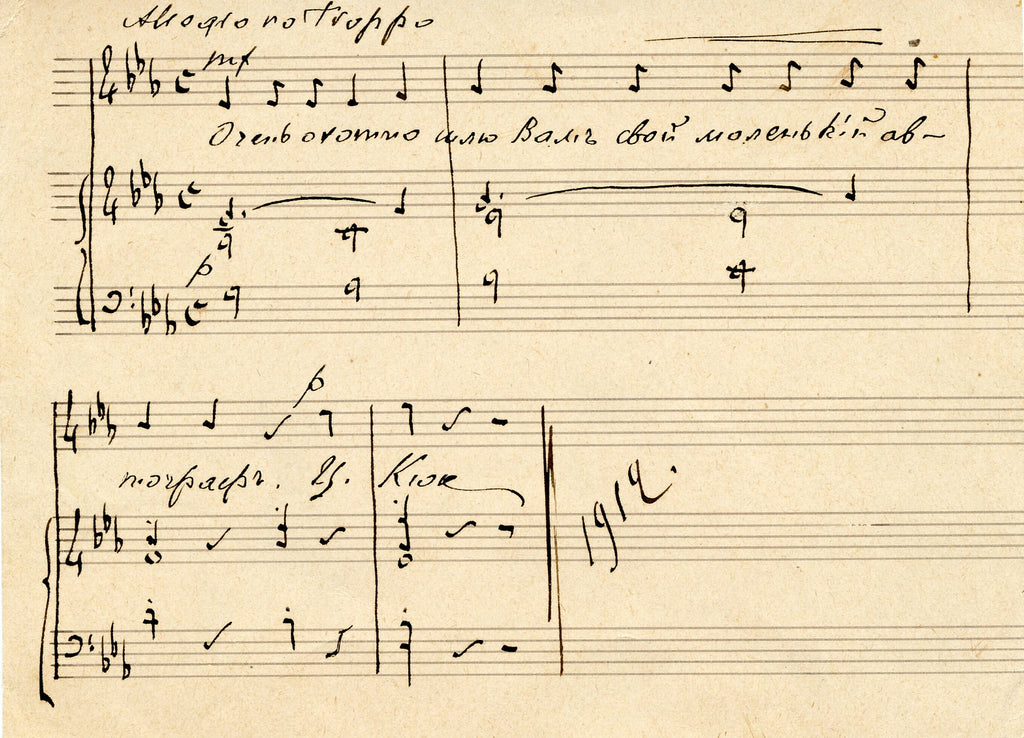 Allegro no Troppo
mf
Очень охотно шлю Вамъ свой маленькій ав-
p
p
тографъ. Ц. Кюи
1912.